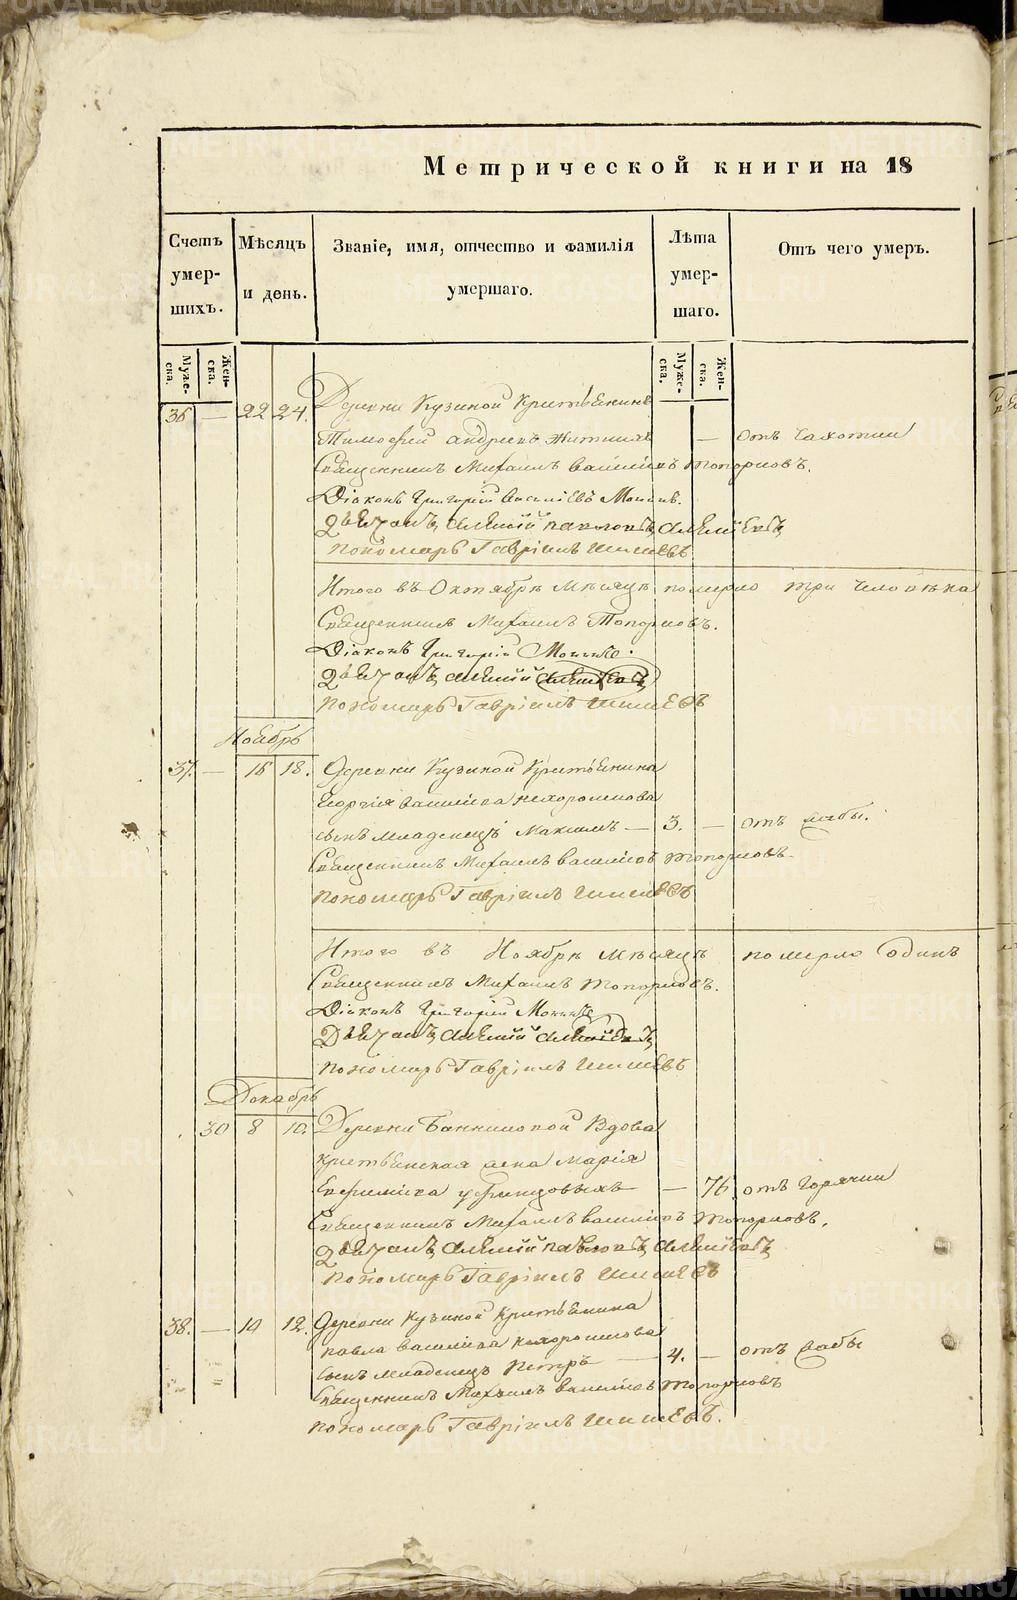 Метрической книги на 18
Счетъ умер- шихъ.
Мѣсяцъ и день.
Званіе, имя, отчество и фамилія умершаго.
Лѣта умер- шаго.
Отъ чего умеръ.
Муже- ска. Жен- ска. Муже- ска. Жен- ска.
36 — 22 24. Деревни Кузиной Крестьянинъ
Тимофей Андреевъ — отъ чахотки
Священникъ Михаилъ Васильевъ Топорковъ.
Діаконъ Григорій Васильевъ
Дьячокъ Алексій Павловъ
Пономарь Гавріилъ Шишевъ
Итого въ Октябрѣ Мѣсяцѣ померло три человѣка
Священникъ Михаилъ Топорковъ.
Діаконъ Григорій
Дьячокъ Алексій
Пономарь Гавріилъ Шишевъ
Ноябрь
37. — 16 18. Деревни Кузиной Крестьянина
Георгія Васильева Нехорошкова
сынъ младенецъ Максимъ — 3. — отъ рабы.
Священникъ Михаилъ Васильевъ Топорковъ
Пономарь Гавріилъ Шишевъ
Итого въ Ноябрѣ Мѣсяцѣ померло одинъ
Священникъ Михаилъ Топорковъ.
Діаконъ Григорій
Дьячокъ Алексій
Пономарь Гавріилъ Шишевъ
Декабрь
30 8 10. Деревни Вдова
крестьянская жена Марія
— 76. отъ горячки
Священникъ Михаилъ Васильевъ Топорковъ.
Дьячокъ Алексій Павловъ
Пономарь Гавріилъ Шишевъ
38. — 10 12. Деревни Кузиной Крестьянина
Павла Васильева Нехорошкова
сынъ младенецъ Петръ — 4. — отъ рабы
Священникъ Михаилъ Васильевъ Топорковъ
Пономарь Гавріилъ Шишевъ.
METRIKI.GASO-URAL.RU